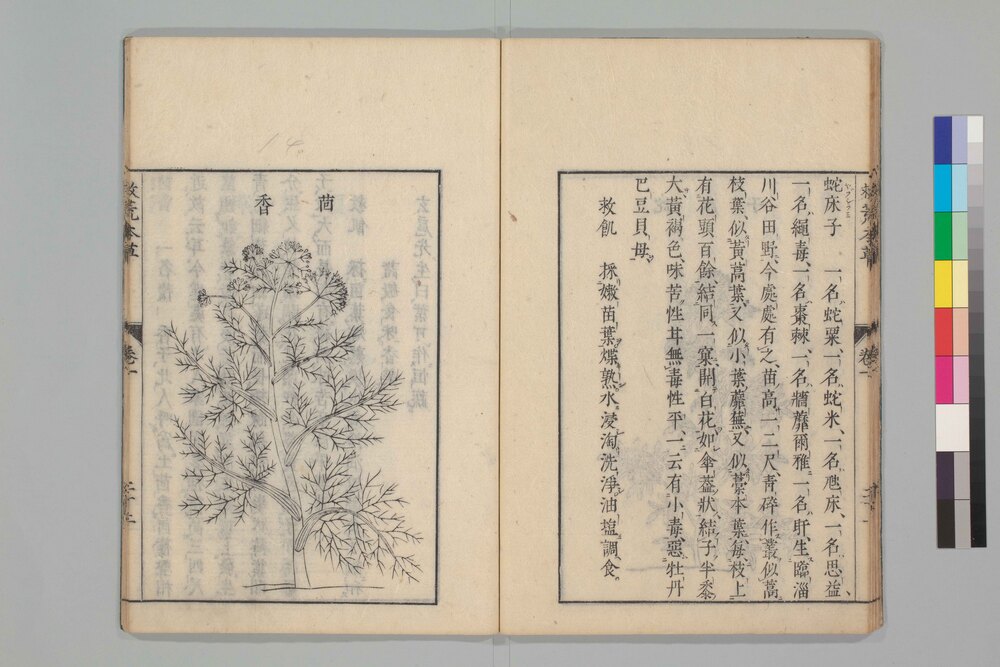 蛇床子 一名蛇粟、一名蛇米、一名虺床、一名思益、
一名繩毒、一名棗棘、一名牆蘼、爾雅一名盱、生臨淄
川谷田野、今處處有之、苗高一二尺、青碎作叢似蒿
枝、葉似黃蒿葉、又似小葉蘼蕪、又似藁本葉、每枝上
有花頭百餘、結同一窠、開白花如傘蓋狀、結子半黍
大、黃褐色、味苦性甘無毒性平、一云有小毒、惡牡丹
巴豆貝母。
救飢 採嫩苗葉煠熟、水浸淘洗淨、油塩調食。
救荒本草
卷一
茴
香
救荒本草
卷一